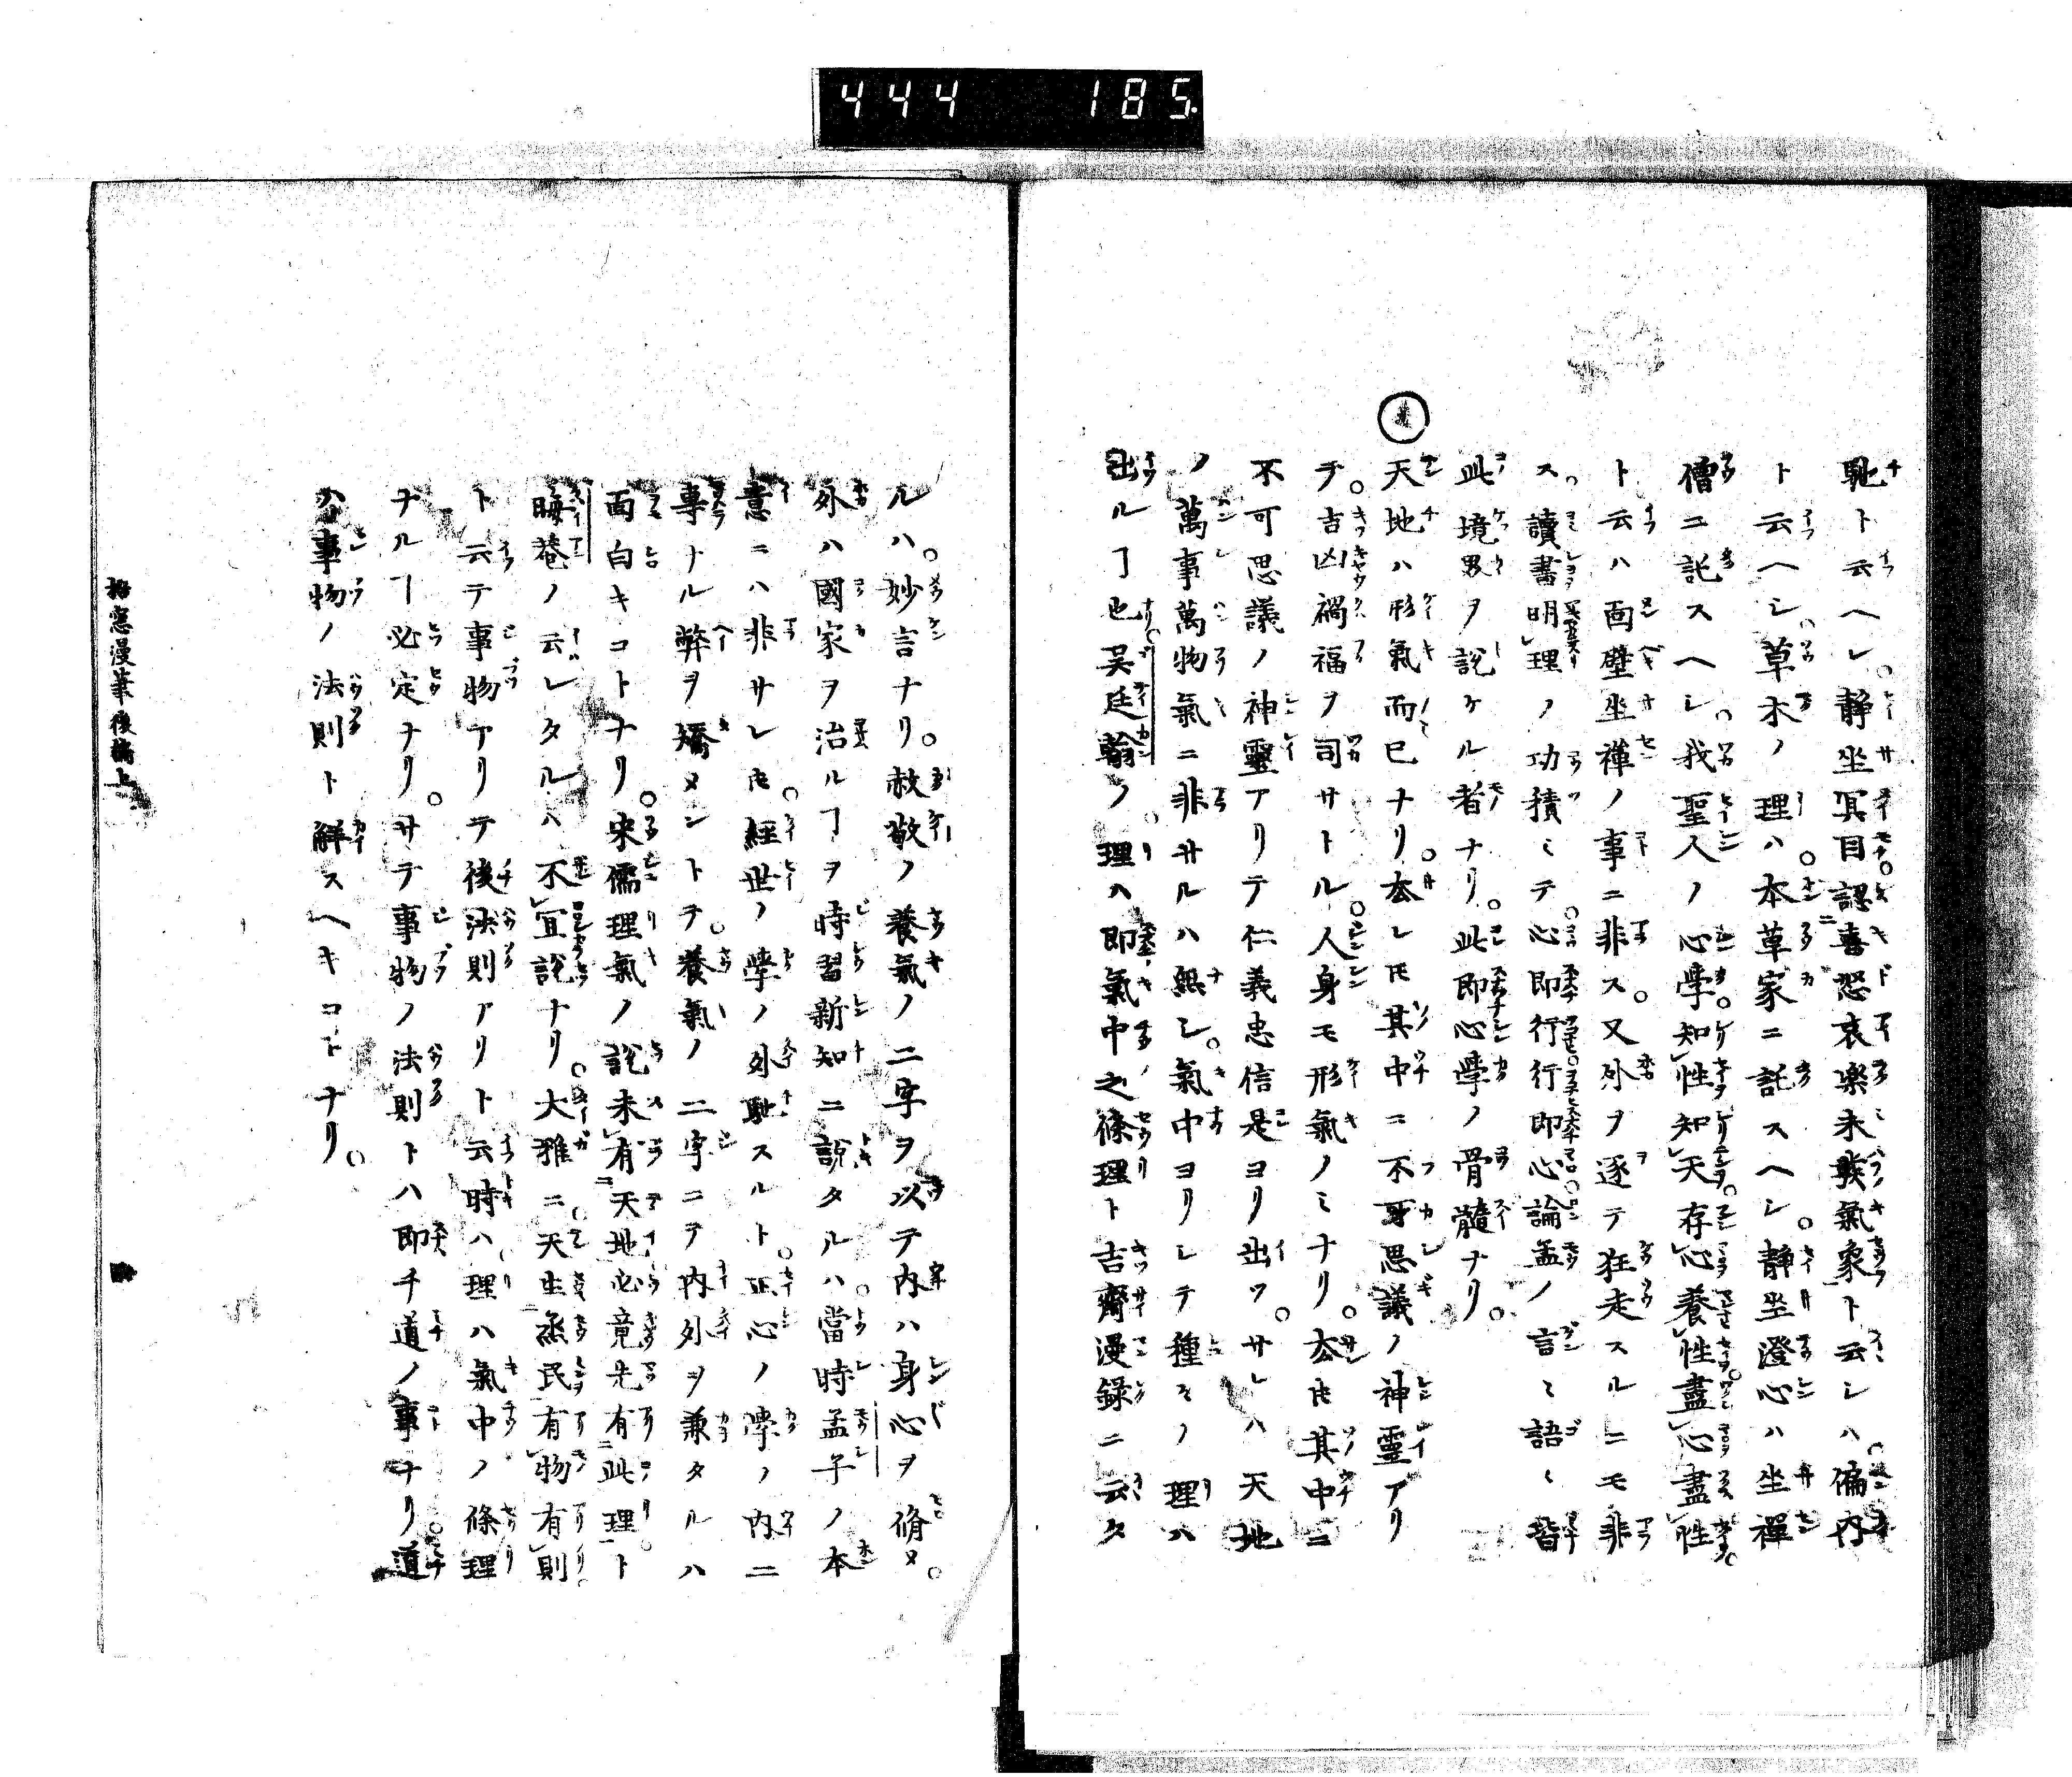 444 185.
馳ト云ヘシ。静坐冥目認喜怒哀楽未発氣象ト云シハ。偏内
ト云ヘシ。草木ノ理ハ。本草家ニ託スヘシ。静坐澄心ハ坐禪
僧ニ託スヘシ。我聖人ノ心學。知性知天存心養性盡心盡性。
ト云ハ面壁坐禅ノ事ニ非ス。又外ヲ逐テ狂走スルニモ非
ス。讀書明理ノ功積ミテ。心即行行即心。論孟ノ言々語々皆
此境界ヲ說ケル者ナリ。此即心學ノ骨髓ナリ。
天地ハ形氣而已ナリ。然レ𪜈其中ニ不可思議ノ神靈アリ
テ。吉凶禍福ヲ司サトル。人身モ形氣ノミナリ。然𪜈其中ニ
不可思議ノ神靈アリテ仁義忠信是ヨリ出ツ。サレハ天地
ノ萬事萬物氣ニ非サルハ無シ。氣中ヨリシテ種々ノ理ハ
出ルヿ也。吳廷翰ノ。理ハ即氣中之條理ト吉齋漫録ニ云タ
ルハ。妙言ナリ。赦敬ノ養氣ノ二字ヲ以テ内ハ身心ヲ脩メ。
外ハ國家ヲ治ルヿヲ時習新知ニ說タルハ。當時孟子ノ本
意ニハ非サレ𪜈。經世ノ學ノ外馳スルト。正心ノ學ノ内ニ
專ナル弊ヲ矯メントテ。養氣ノ二字ニテ内外ヲ兼タルハ
面白キコトナリ。宋儒理氣ノ說未有天地必竟先有此理ト
晦菴ノ云レタルハ不宜說ナリ。大雅ニ。天生烝民有物有則
ト云テ事物アリテ後法則アリト云時ハ。理ハ氣中ノ條理
ナルヿ必定ナリ。サテ事物ノ法則トハ即チ道ノ事ナリ。道
ハ事物ノ法則ト解スヘキコトナリ。
梧窓漫筆後編上